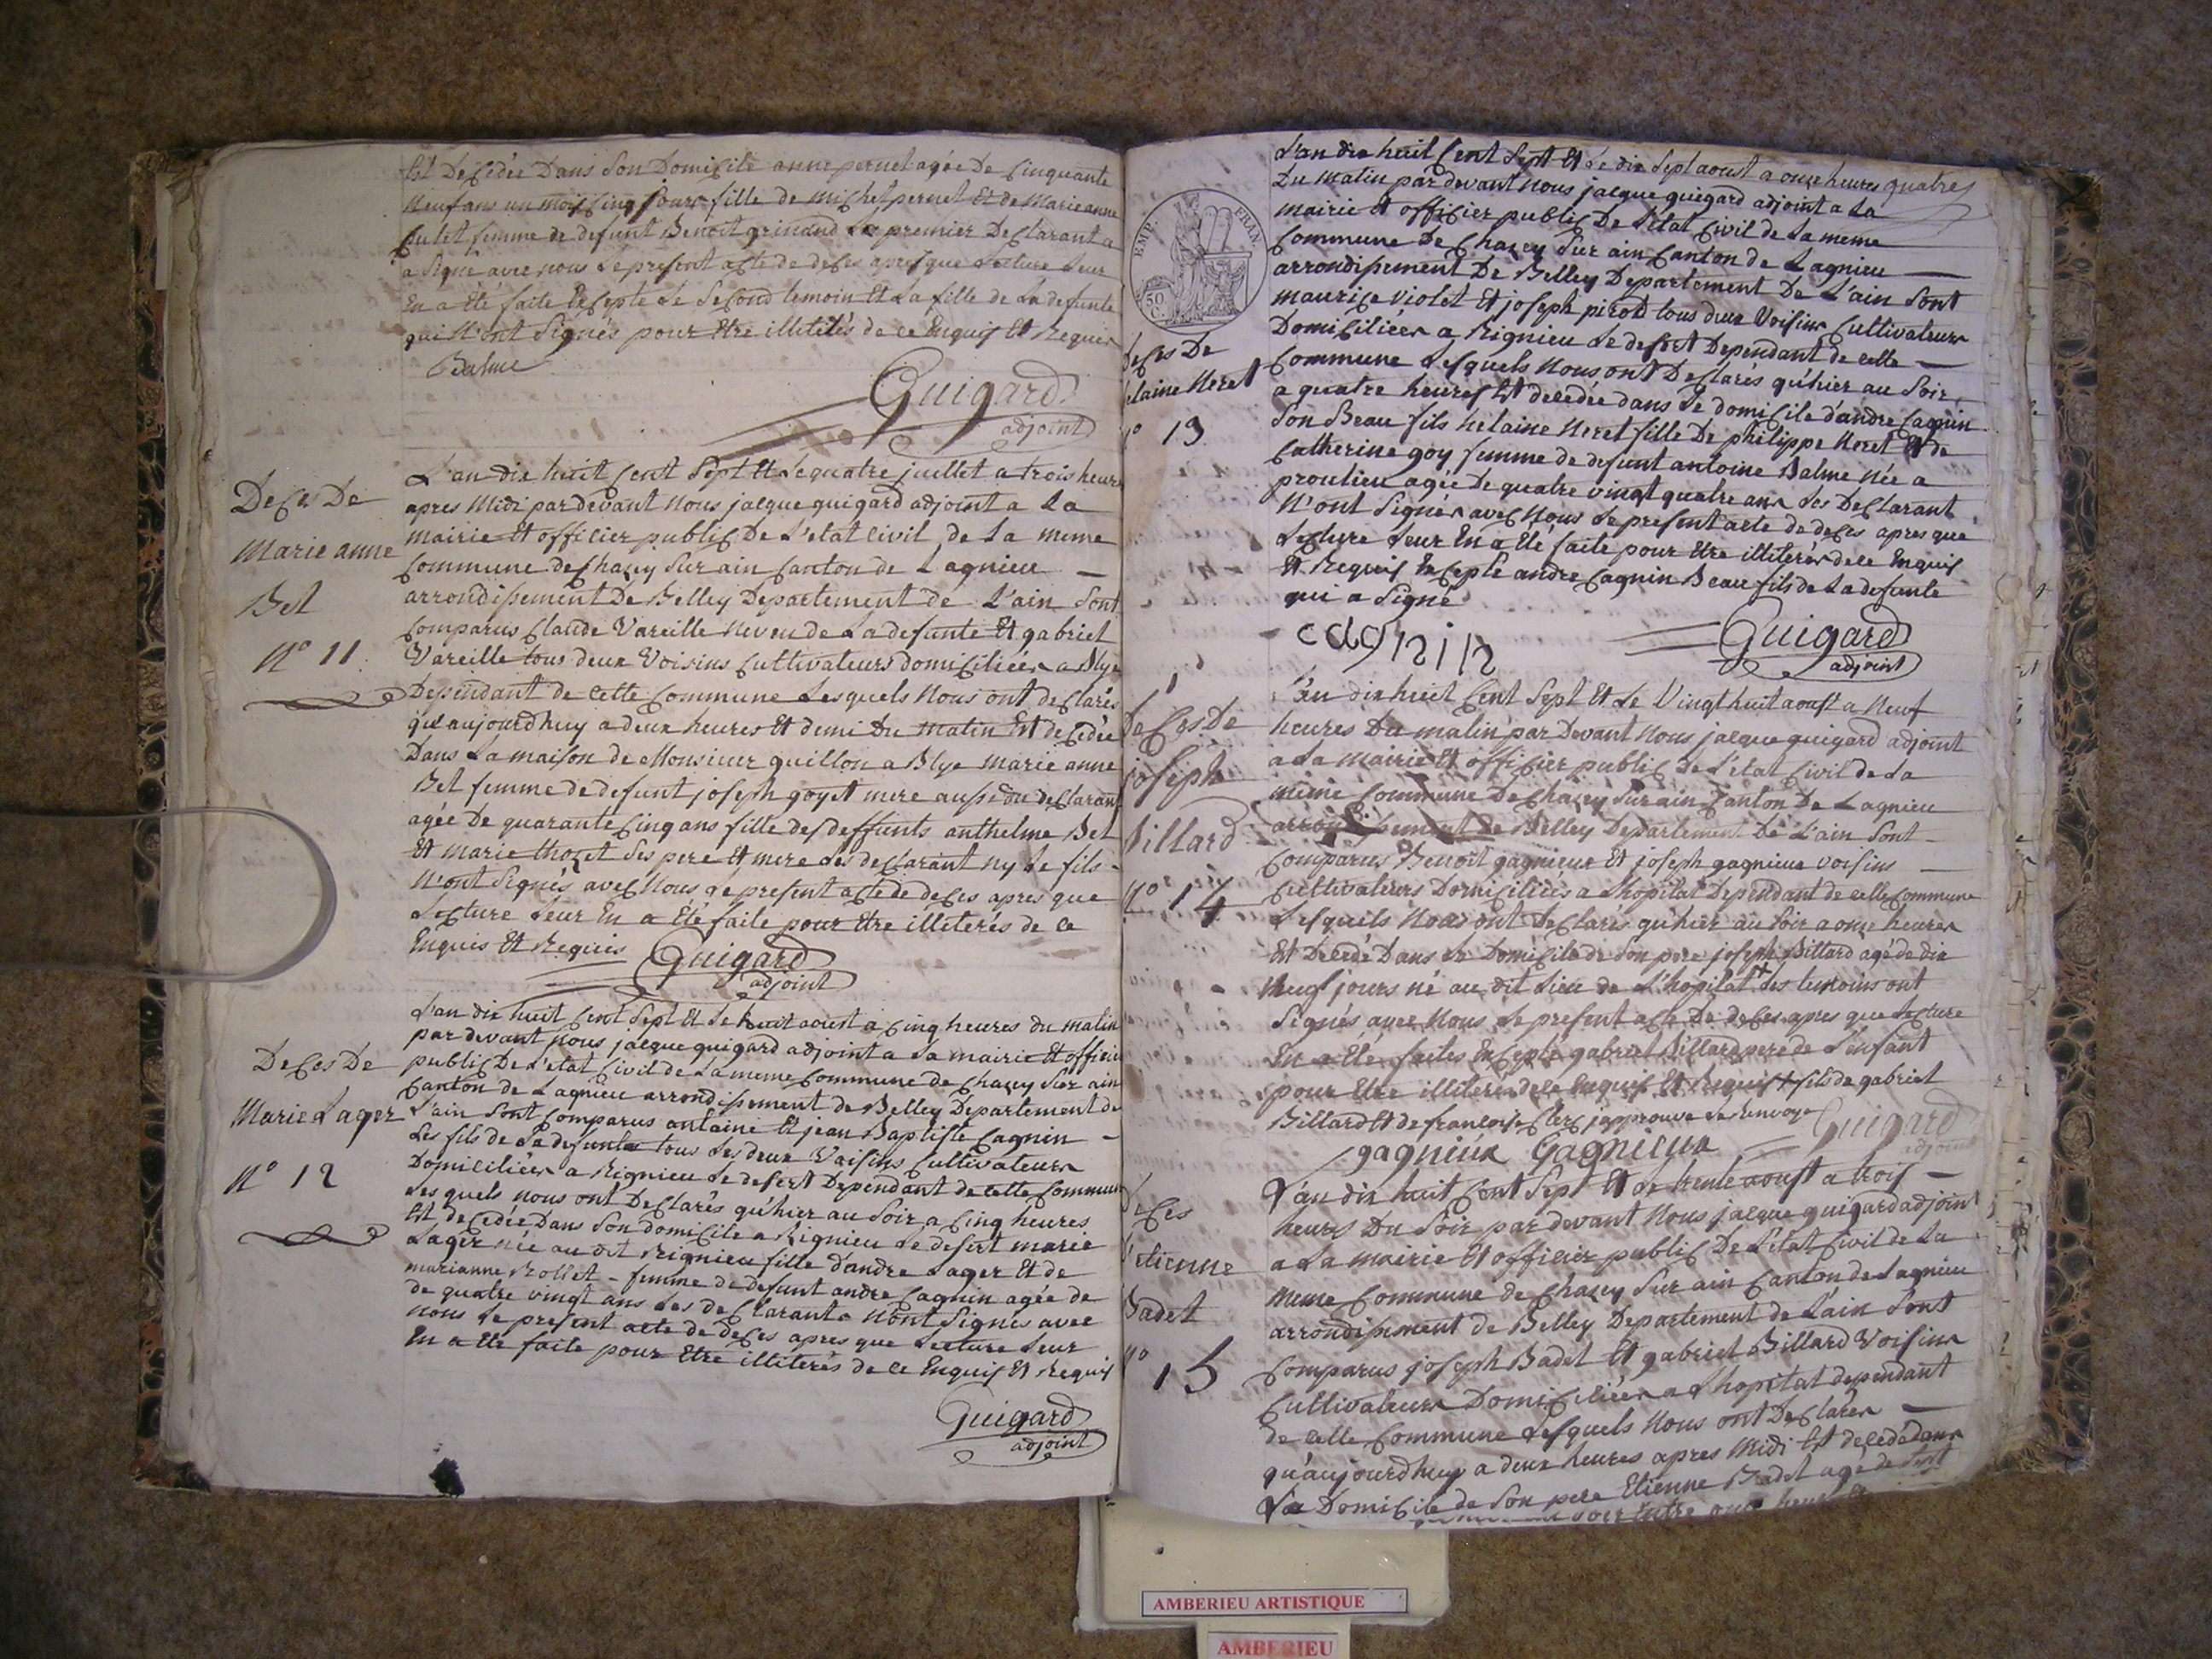 Est Decedée Dans Son Domicile anne pernet agée De Cinquante
Neuf ans un mois Cinq jours fille de Michel pernet Et de Marie anne
Culet femme de defunt Benoit grinand Le premier Declarant a
a Signé avec nous Le present acte de deces apres que Lecture Leur
En a Eté faite Excepté Le Second temoin Et La fille de La defunte
qui N'ont Signés pour Etre illiterés de ce Enquis Et Requis
Balme
Guigard
adjoint
Deces De
Marie anne
Bet
N° 11
L'an dix huit Cent Sept Et Le quatre juillet a trois heures
apres Midi par devant Nous jacque guigard adjoint a La
mairie Et officier public De L'etat Civil de La meme
Commune de Chazey Sur ain Canton de Lagnieu
arrondissement De Belley Departement de L'ain Sont
Comparus Claude Vareille Neveu de La defunte Et gabriel
Vareille tous deux Voisins Cultivateurs domiciliées a Blye
Dependant de cette Commune Lesquels Nous ont declarés
qu'aujourdhuy a deux heures Et demi Du matin Est decedée
Dans La maison de Monsieur guillon a Blye marie anne
Bet femme de defunt joseph goyet mere aussi du declarant
agée De quarante Cinq ans fille des deffunts anthelme Bet
Et marie thozet Ses pere Et mere Les declarant ny Le fils
N'ont Signés avec Nous Le present acte de deces apres que
Lecture Leur En a Eté faite pour Etre illiterés de ce
Enquis Et Requis Guigard
adjoint
Deces De
Marie Lager
N° 12
L'an dix huit Cent Sept Et Le huit aoust a Cinq heures du matin
par devant Nous jacque guigard adjoint a La mairie Et officier
public De L'etat Civil de La meme Commune de Chazey Sur ain
Canton de Lagnieu arrondissement de Belley Departement de
L'ain Sont Comparus antoine Et jean Baptiste Cagnin
Les fils de La defunte tous Les deux Voisins Cultivateurs
Domiciliées a Rignieu Le desert Dependant de cette Commune
Lesquels nous ont Declarés qu'hier au Soir a Cinq heures
Est decedée Dans Son domicile a Rignieu Le desert marie
Lager née au dit Rignieu fille d'andre Lager Et de
marianne Rollet femme de defunt andre Cagnin agée de
de quatre vingt ans Les declarants N'ont Signés avec
nous Le present acte de deces apres que Lecture Leur
En a Eté faite pour Etre illiterés de ce Enquis Et Requis
Guigard
adjoint
EMP. FRAN.
50 C.
Deces De
elaine Neret
N° 13
L'an dix huit Cent Sept Et Le dix Sept aoust a onze heures quatres
Du Matin par devant nous jacque guigard adjoint a La
Mairie Et officier public De L'etat Civil de La meme
Commune De Chazey Sur ain Canton de Lagnieu
arrondissement De Belley Departement De L'ain Sont
maurise violet Et joseph pirod tous deux Voisins Cultivateurs
Domiciliées a Rignieu Le desert Dependant de cette
Commune Lesquels Nous ont Declarés qu'hier au Soir
a quatre heures Est decedée dans Le domicile d'andre Cagnin
Son Beau fils helaine Neret fille De philippe Neret Et de
Catherine goy femme de defunt antoine Balme Née a
proulieu agée De quatre vingt quatre ans Les Declarant
N'ont Signés avec Nous Le present acte de deces apres que
Lecture Leur En a Eté faite pour Etre illiterés de ce Enquis
Et Requis Excepté andre Cagnin Beau fils de La defunte
qui a Signé
cagnin
Guigard
adjoint
Deces De
joseph
Billard
N° 14
L'an dix huit Cent Sept Et Le Vingt huit aoust a Neuf
heures Du matin par Devant Nous jacque guigard adjoint
a La Mairie Et officier public De L'etat Civil de La
meme Commune De Chazey Sur ain Canton De Lagnieu
arrondissement De Belley Departement De L'ain Sont
Comparus Benoit gagnieux Et joseph gagnieux voisins
Cultivateurs Domiciliées a L'hopital Dependant de cette Commune
Lesquels Nous ont Declarés qu'hier au Soir a onze heures
Est Decedé Dans Le Domicile de Son pere joseph Billard agé de dix
Neuf jours né au dit Lieu de L'hopital + Les temoins ont
Signés avec Nous Le present acte De deces apres que Lecture
En a Eté faites Excepté gabriel Billard pere de L'enfant
pour Etre illiterés de ce Enquis Et Requis + fils de gabriel
Billard Et de françoise Clerc japprouve Le Renvoye
gagnieux Gagnieux
Guigard
adjoint
Deces
d'etienne
Badet
N° 15
L'an dix huit Cent Sept Et Le trente aoust a trois
heures Du Soir par devant Nous jacque guigard adjoint
a La mairie Et officier public De L'etat Civil de La
Meme Commune de Chazey Sur ain Canton de Lagnieu
arrondissement de Belley Departement de L'ain Sont
Comparus joseph Badet Et gabriel Billard Voisins
Cultivateurs Domiciliées a L'hopital dependant
de cette Commune Lesquels Nous ont Declarés
qu'aujourdhuy a deux heures apres Midi Est decedé dans
Le Domicile de Son pere Etienne Badet agé de Sept
AMBERIEU ARTISTIQUE
AMBERIEU